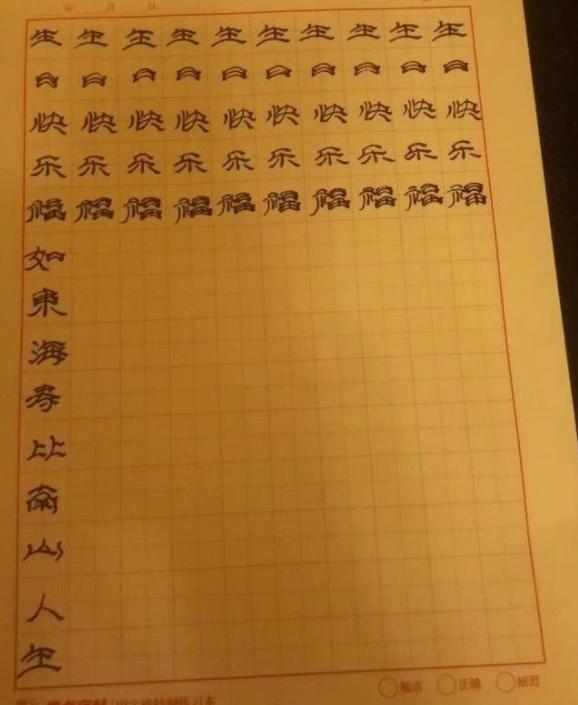 年 月 日
生生生生生生生生生生
日日日日日日日日日日
快快快快快快快快快快
乐乐乐乐乐乐乐乐乐乐
福福福福福福福福福福
如
東
海
寿
比
南
山
人
生
正确 规范